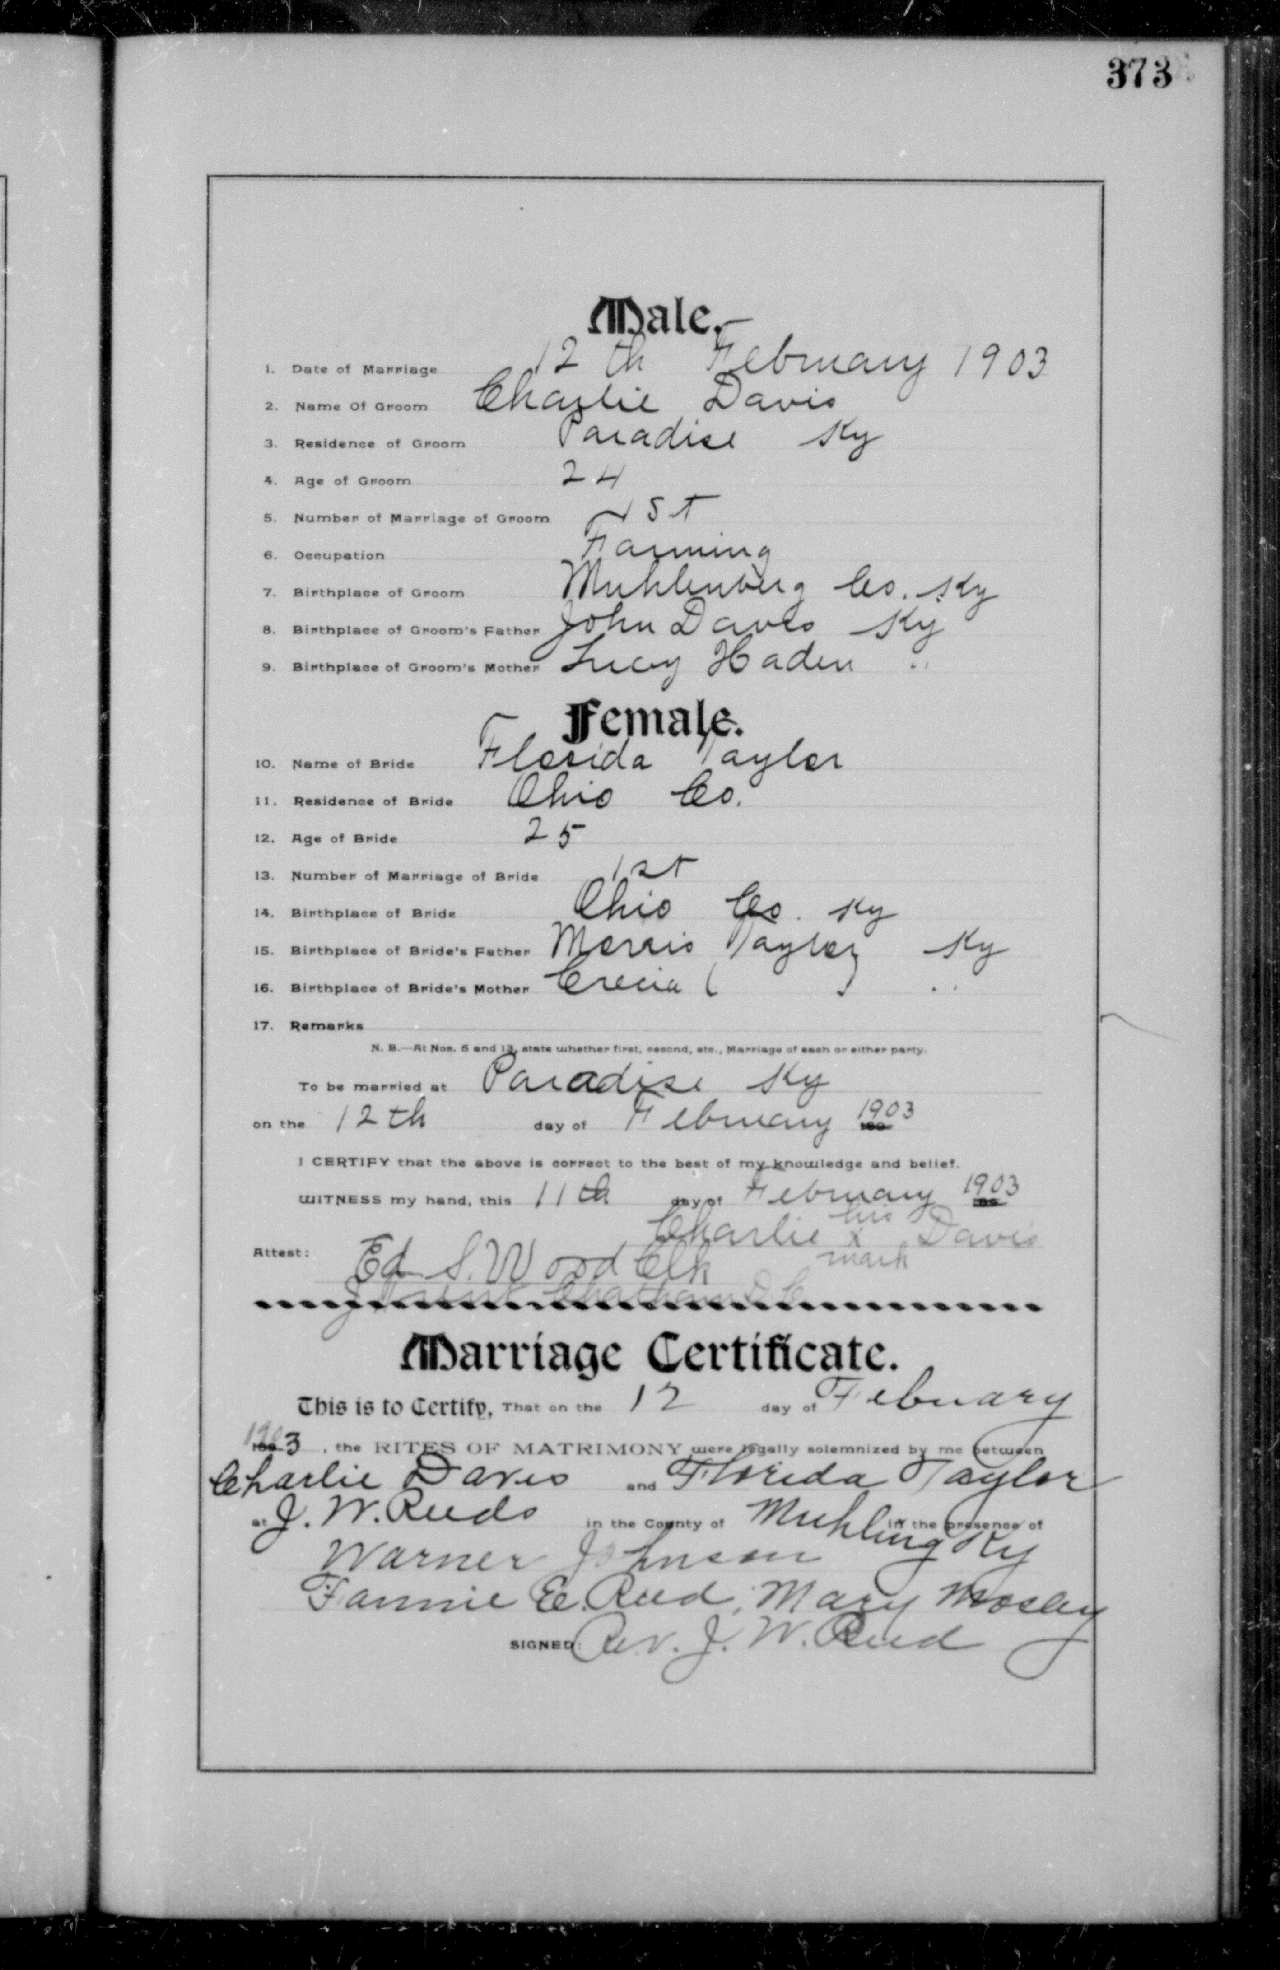 373
Male.
1. Date of Marriage 12 th February 1903
2. Name Of Groom Charlie Davis
3. Residence of Groom Paradise Ky
4. Age of Groom 24
5. Number of Marriage of Groom 1st
6. Occupation Farming
7. Birthplace of Groom Muhlenberg Co. Ky
8. Birthplace of Groom's Father John Davis Ky
9. Birthplace of Groom's Mother Lucy Haden "
Female.
10. Name of Bride Florida Taylor
11. Residence of Bride Ohio Co.
12. Age of Bride 25
13. Number of Marriage of Bride 1st
14. Birthplace of Bride Ohio Co. Ky
15. Birthplace of Bride's Father Morris Taylor Ky
16. Birthplace of Bride's Mother Crecia ( ) "
17. Remarks
N. B.—At Nos. 5 and 13, state whether first, second, etc., Marriage of each or either party.
To be married at Paradise Ky
on the 12th day of February 1903
I CERTIFY that the above is correct to the best of my knowledge and belief.
WITNESS my hand, this 11th day of February 1903
Charlie his x mark Davis
Attest: Ed S. Wood Clk
Chatham D.C.
Marriage Certificate.
This is to Certify, That on the 12 day of Febuary
1903, the RITES OF MATRIMONY were legally solemnized by me between
Charlie Davis and Florida Taylor
at J. W. Reeds in the County of Muhling Ky in the presence of
Warner Johnson
Fannie E. Reed, Mary Mosley
SIGNED: Rev. J. W. Reed